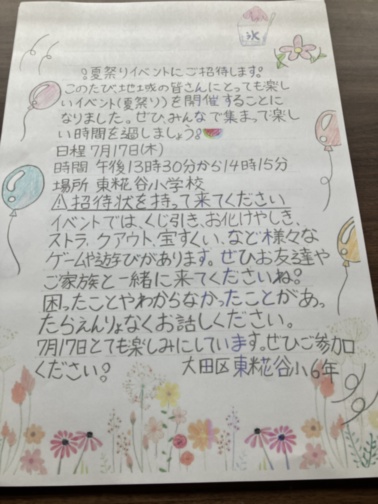 氷
!夏祭りイベントにご招待します!
このたび、地域の皆さんにとっても楽し
いイベント(夏祭り)を開催することに
なりました。ぜひ、みんなで集まって楽し
い時間を過しましょう!
日程 7月17日(木)
時間 午後13時30分から14時15分
場所 東糀谷小学校
⚠招待状を持って来てください
イベントでは、くじ引き、お化けやしき、
ストラックアウト、宝すくい、など様々な
ゲームや遊びがあります。ぜひお友達や
ご家族と一緒に来てくださいね!
困ったことやわからなかったことがあっ
たらえんりょなくお話しください。
7月17日とても楽しみにしています。ぜひご参加
ください! 大田区東糀谷小6年